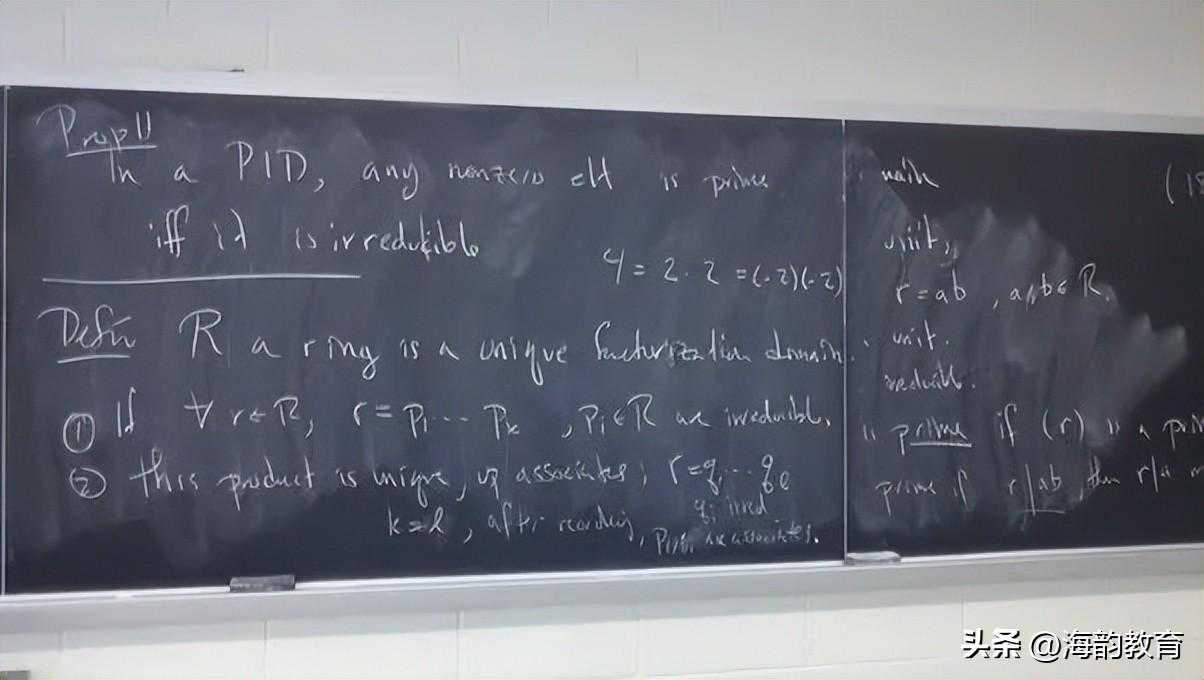 Prop 11
In a PID, any nonzero elt is prime
iff it is irreducible
4 = 2 · 2 = (-2)(-2)
Defn R a ring is a unique factorization domain
① If ∀ r ∈ R, r = p₁ ... pₖ , pᵢ ∈ R are irreducible.
② this product is unique, up associates, r = q₁ ... qₗ
qᵢ irred
k = l , after reordering, pᵢ, qᵢ are associates.
unit,
r = ab , a, b ∈ R.
unit.
is prime if (r) is a prim
prime if r|ab, then r|a
头条 @海韵教育